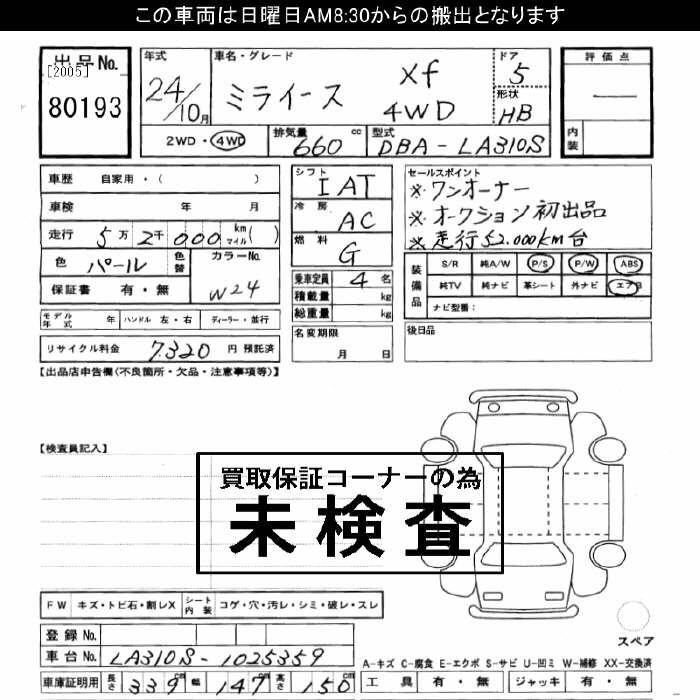 この車両は日曜日AM8:30からの搬出となります
出品No.
[2005]
80193
年式
24/10月
車名・グレード
ミライース
Xf
4WD
ドア
5
形状
HB
2WD・4WD
排気量
660
cc
型式
DBA-LA310S
評価点
内装
車歴 自家用・( )
車検 年 月
走行 5万2千000 km マイル ( )
色 パール 色替 カラーNo. W24
保証書 有・無
シフト IAT
冷房 AC
燃料 G
乗車定員 4 名
積載量 kg
総重量 kg
名変期限
月 日
セールスポイント
※ワンオーナー
※オークション初出品
※走行52.000km台
装備品
S/R 純A/W P/S P/W ABS
純TV 純ナビ 革シート 外ナビ エアB
ナビ型番:
後日品
モデル年式 年 ハンドル 左・右 ディーラー・並行
リサイクル料金 7320 円 預託済
【出品店申告欄(不良箇所・欠品・注意事項等)】
【検査員記入】
買取保証コーナーの為
未検査
FW キズ・トビ石・割レX シート内装 コゲ・穴・汚レ・シミ・破レ・スレ
登録No.
車台No. LA310S-1025359
車庫証明用 長さ 339cm 幅 147cm 高さ 150cm
スペア
A-キズ C-腐食 E-エクボ S-サビ U-凹ミ W-補修 XX-交換済
工具 有・無 ジャッキ 有・無